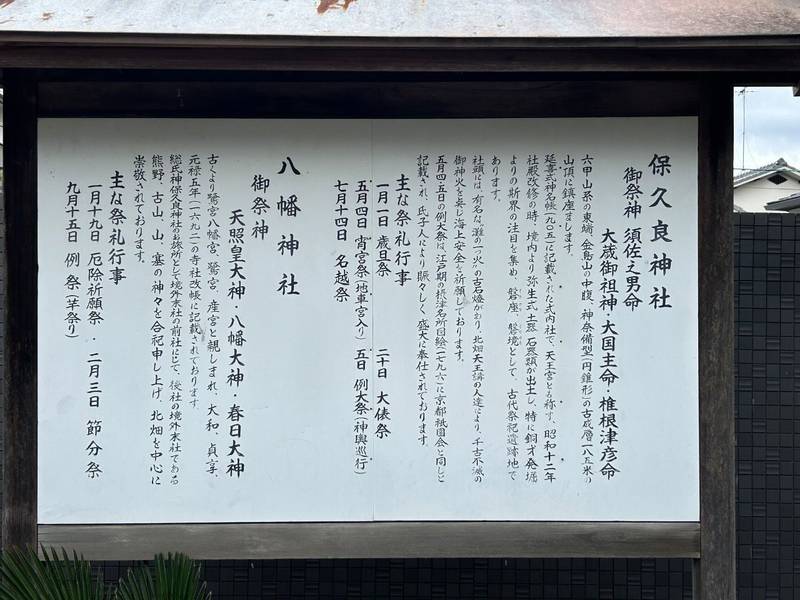 保久良神社
御祭神 須佐之男命
大歳御祖神・大国主命・椎根津彦命
六甲山系の東端、金鳥山の中腹、神奈備型(円錐形)の古成層一八五米の
山頂に鎮座まします。
延喜式神名帳(九〇五)に記載された式内社で、天王宮とも称す、昭和十二年
社殿改修の時、境内より弥生式土器、石器類が出土し、特に銅才発掘
よりの斯界の注目を集め、磐座、磐境として、古代祭祀遺跡地で
あります。
社頭には、有名な灘の一ツ火の古石燈があり、北畑天王講の人達により、千古不滅の
御神火を奉じ海上安全を祈願しております。
五月四・五日の例大祭は、江戸期の摂津名所図絵(一七九六)に京都祇園会と同しと
記載され、氏子人により賑々しく盛大に奉仕されております。
主な祭礼行事
一月一日 歳旦祭 二十日 大俵祭
五月四日 宵宮祭(地車宮入り) 五日 例大祭(神輿巡行)
七月十四日 名越祭
八幡神社
御祭神
天照皇大神・八幡大神・春日大神
古くより鷺宮八幡宮、鷺宮、産宮と親しまれ、大和、貞享、
元禄五年(一六九二)の寺社改帳に記載されております。
総氏神保久良神社のお旅所として境外末社の前社にて、後社の境外末社である
熊野、古山、山、塞の神々を合祀申し上げ、北畑を中心に
崇敬されております。
主な祭礼行事
一月十九日 厄除祈願祭 ・ 二月三日 節分祭
九月十五日 例祭(芋祭り)